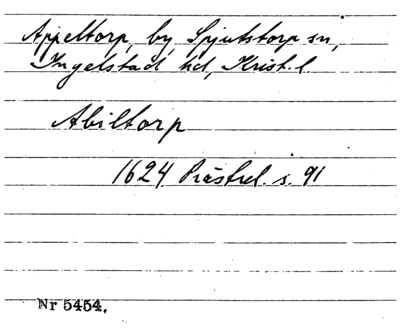 Appeltorp, by, Spjutstorp sn,
Ingelstad hd, Krist. l.
Abiltorp
1624 Prästrel. s. 91
Nr 5454.